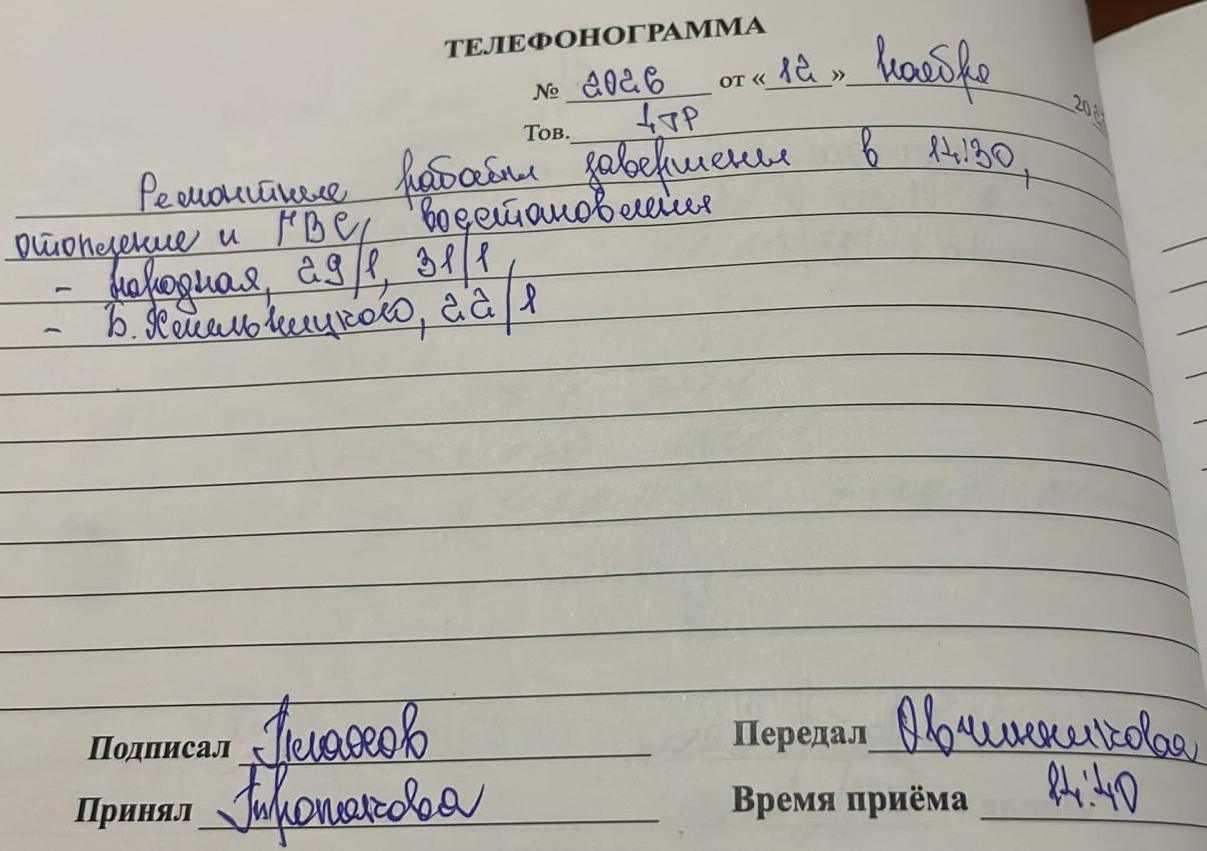 ТЕЛЕФОНОГРАММА
№ 2026 от « 12 » ноября 20
Тов.
Ремонтные работы завершены в 14:30,
отопление и ГВС, восстановлены
- Народная, 29/1, 31/1,
- Б. Хмельницкого, 22/1
Подписал
Передал Овчинникова
Принял
Время приёма 14:40